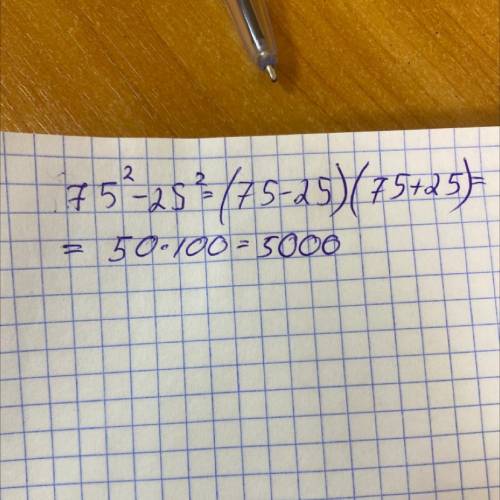 75²-25²=(75-25)(75+25)=
= 50·100=5000